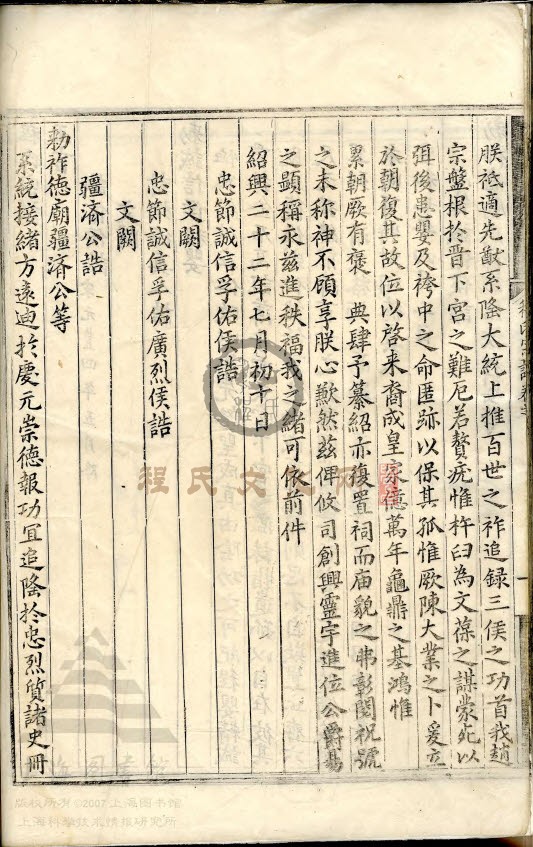 朕祗遹先猷系隆大統上推百世之祚追録三侯之功首我趙
宗盤根於晋下宮之難厄若贅疣惟杵臼為文葆之謀蒙死以
弭後患嬰及袴中之命匿跡以保其孤惟厥陳大業之卜爰立
於朝復其故位以啓来裔成皇家億萬年龜鼎之基鴻惟
累朝厥有褒 典肆予纂紹亦復置祠而庙貌之弗彰閟祝號
之未称神不顧享朕心歉然兹俾攸司創興靈宇進位公爵昜
之顕稱永兹進秩福我之緒可依前件
紹興二十二年七月初十日
忠節誠信孚佑侯誥
文闕
忠節誠信孚佑廣烈侯誥
文闕
彊済公誥
勑祚徳廟彊济公等
系統接緒方遠迪扵慶元崇德報功宜追隆於忠烈質諸史冊
程氏宗譜卷之
一
程氏文
版权所有©2007上海图书馆
上海科學技术情报研究所